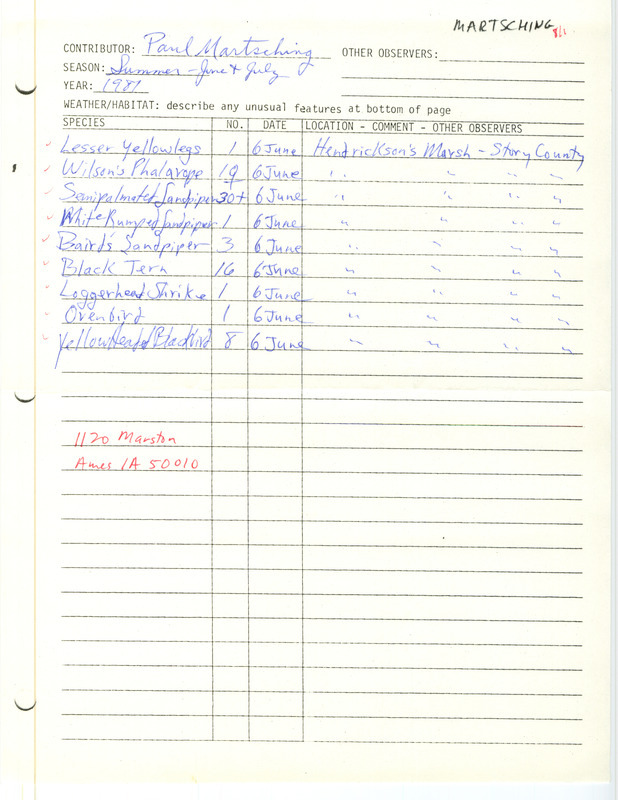 MARTSCHING 8/1
CONTRIBUTOR: Paul Martsching OTHER OBSERVERS:
SEASON: Summer - June & July
YEAR: 1987
WEATHER/HABITAT: describe any unusual features at bottom of page
SPECIES NO. DATE LOCATION - COMMENT - OTHER OBSERVERS
Lesser Yellowlegs 1 6 June Hendrickson's Marsh - Story County
Wilson's Phalarope 19 6 June " " " "
Semipalmated Sandpiper 30+ 6 June " " " "
White Rumped Sandpiper 1 6 June " " " "
Baird's Sandpiper 3 6 June " " " "
Black Tern 16 6 June " " " "
Loggerhead Shrike 1 6 June " " " "
Ovenbird 1 6 June " " " "
Yellowheaded Blackbird 8 6 June " " " "
1120 Marston
Ames IA 50010